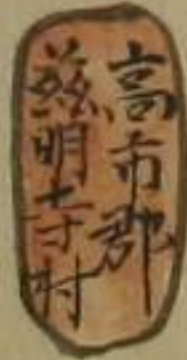 高市郡
慈明寺村